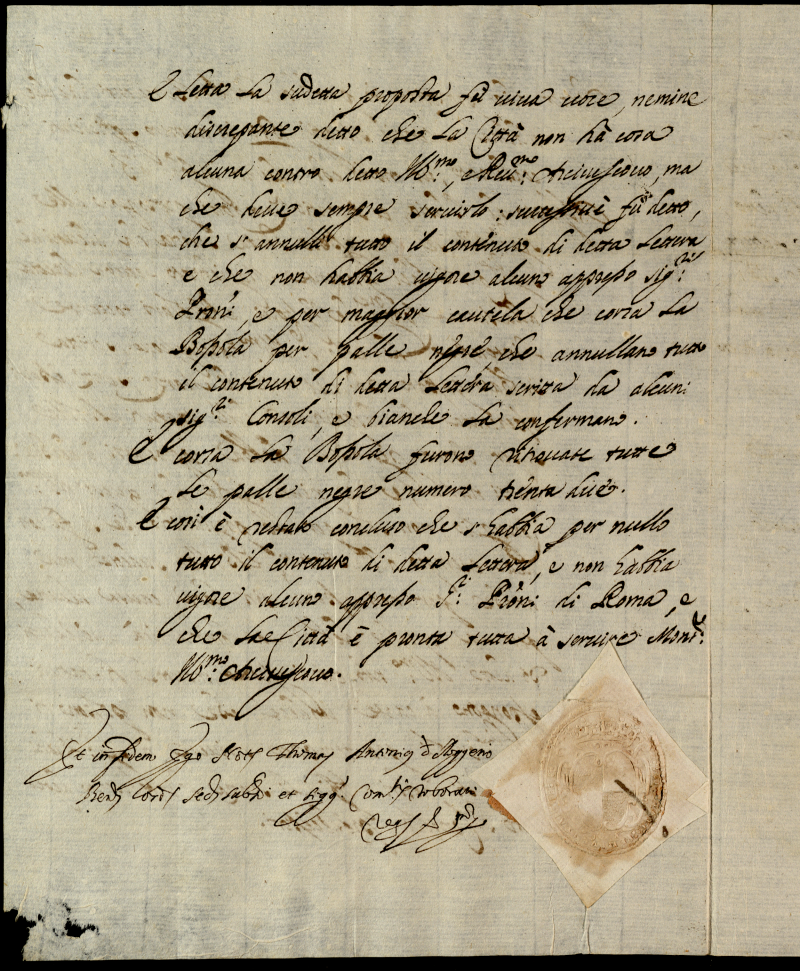 E Letta la sudetta proposta fù viva voce, nemine
discrepante detto che la Città non hà cosa
alcuna contro detto Ill.mo, e Rev.mo: Arcivescovo, ma
che deve sempre servirlo: fù detto,
che s'annulli tutto il contenuto di detta lettera
e che non habbia vigore alcuno appresso sig.ri
Proni, e per maggior cautela che corra la
Bossola per palle negre, che annullano tutto
il contenuto di detta lettera scritta da alcuni
sig.ri Consoli, e bianche la confermano.
E corsa la Bossola furono ritrovate tutte
le palle negre numero trenta due.
E così è restato concluso che s'habbia per nullo
tutto il contenuto di detta lettera, e non habbia
vigore alcuno appresso S.ri Proni di Roma, e
che la Città è pronta tutta à servire Mons.r
Ill.mo Arcivescovo.
Et in fidem Ego Thomas Antonius
et